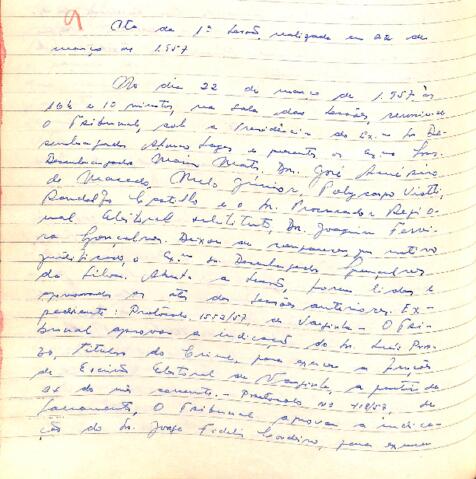 9
Ata da 1ª Sessão, realizada em 22 de
março de 1.957
No dia 22 de março de 1.957, às
16h e 10 minutos, na sala das Sessões, reuniu-se
O Tribunal, sob a Presidência do Ex.mo Sr. De-
sembargador Afonso Lages e presentes os Ex.mos Srs.
Desembargador Mário Matos, Drs. José Américo
de Macedo, Melo Júnior, Polycarpo Viotti,
e o Sr. Procurador Regio-
nal Eleitoral substituto, Dr. Joaquim Ferrei-
ra Gonçalves. Deixou de comparecer, por motivo
justificado, o Ex.mo Sr. Desembargador Gonçalves
da Silva. Aberta a sessão, foram lidas e
aprovadas as atas das sessões anteriores. Ex-
pediente: Protocolo 1553/57, de Varginha - O Tri-
bunal aprovou a indicação do Sr. Luís
titular do Crime, para exercer a função
de Escrivão Eleitoral de Varginha, a partir de
do mês corrente. - Protocolo Nº 418/57, de
Sacramento, O Tribunal aprovou a indica-
ção do Sr. Fidelis Cordeiro, para exercer